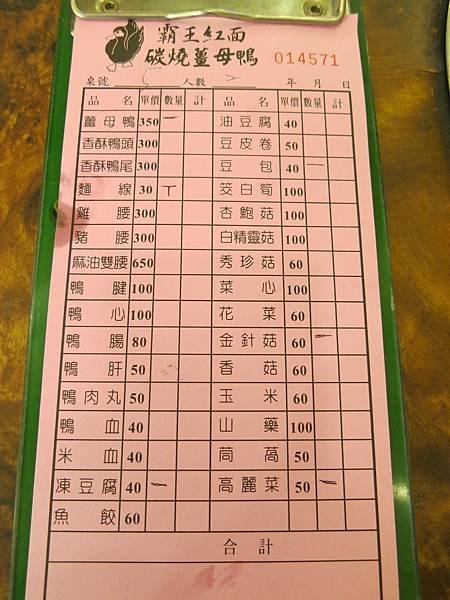 霸王紅面
碳燒薑母鴨 014571
桌號 5 人數 2 年 月 日
品名 單價 數量 計 品名 單價 數量 計
薑母鴨 350 一 油豆腐 40
香酥鴨頭 300 豆皮卷 50
香酥鴨尾 300 豆包 40 一
麵線 30 丅 筊白筍 100
雞腰 300 杏鮑菇 100
豬腰 300 白精靈菇 100
麻油雙腰 650 秀珍菇 60
鴨腱 100 菜心 100
鴨心 100 花菜 60
鴨腸 80 金針菇 60 一
鴨肝 50 香菇 60
鴨肉丸 50 玉米 60
鴨血 40 山藥 100
米血 40 茼萵 50
凍豆腐 40 一 高麗菜 50 一
魚餃 60
合計